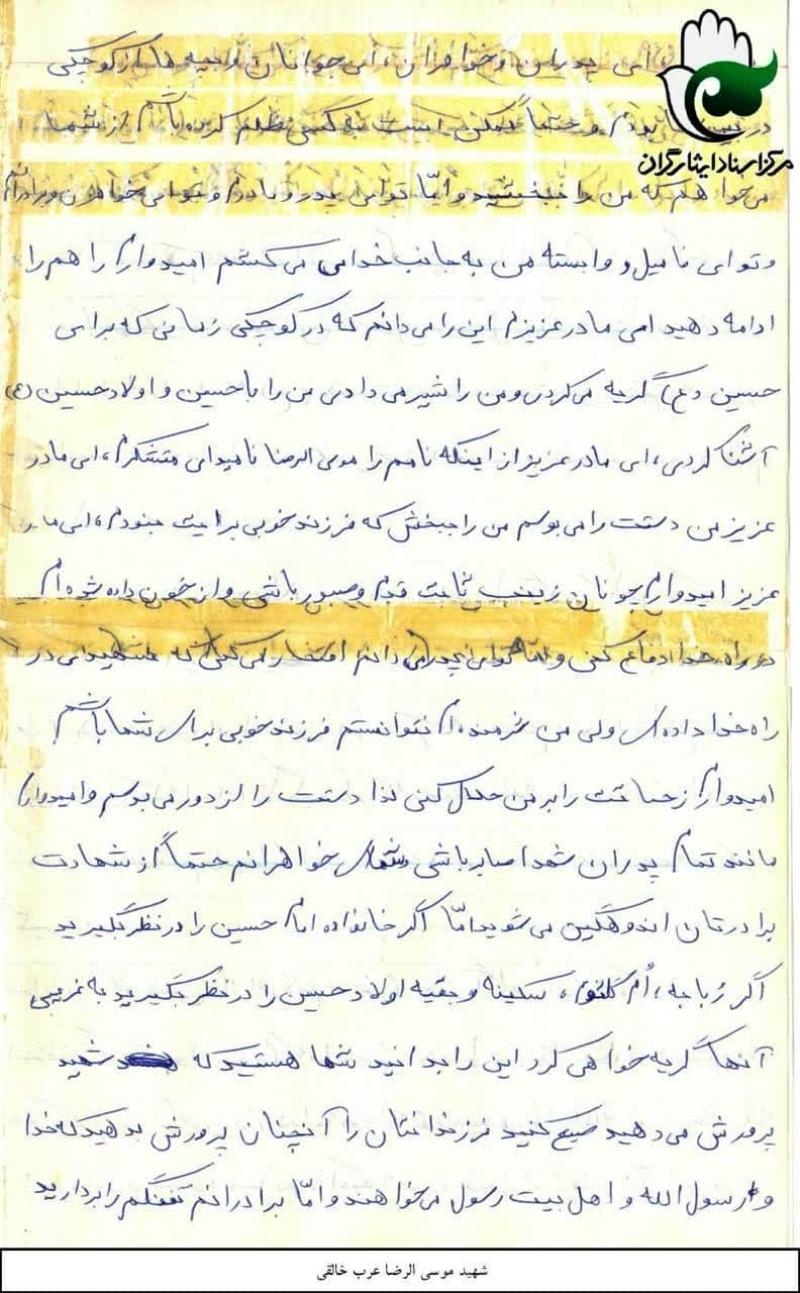 مرکز اسناد ایثارگران
ای پدران و خواهران، ای جوانان و بچه ها از کوچکی
در بین بودم و حتماً ممکن است به کسی ظلم کرده باشم از شما
می خواهم که من را ببخشید و امّا تو ای پدر و مادرم و تو ای خواهرن و برادرانم
و تو ای فامیل و وابسته من به جانب خدای می کشم امیدوارم را هم را
ادامه دهید امی مادر عزیزم این را می دانم که در کوچکی زمانی که برای
حسین (ع) گریه می کردی و من را شیر می دادی من را با حسین و اولاد حسین (ع)
آشنا کردی، ای مادر عزیز از اینکه نامم را موسی الرضا نامیدای متشکرم، ای مادر
عزیز من دستت را می بوسم من را ببخش که فرزند خوبی برایت نبودم، ای ما
عزیز امیدوارم چونان زینب ثابت قدم و صبور باشی و از خون داده شده ام
در راه خدا دفاع کنی و امّا تو ای پدر می دانم افتخار می کنی که شهیدای در
راه خدا داده ای ولی من شرمنده ام نتوانستم فرزند خوبی برای شما باشم
امیدوارم زحماتت را بر من حلال کنی لذا دستت را از دور می بوسم و امیدوارم
مانند تمام پدران شهدا صابر باشی شما ای خواهرانم حتماً از شهادت
برادرتان اندوهگین می شوید امّا اگر خانواده امام حسین را در نظر بگیرید
اگر ربابه، اُم کلثوم، سکینه و بقیه اولاد حسین را در نظر بگیرید به غریبی
آنها گریه خواهی کرد این را بدانید شما هستید که شهید
پرورش می دهید سیع کنید فرزندانتان را آنچنان پرورش بدهید که خدا
و رسول الله و اهل بیت رسول می خواهند و امّا برادرانم تفنگم را بردارید
شهید موسی الرضا عرب خالقی